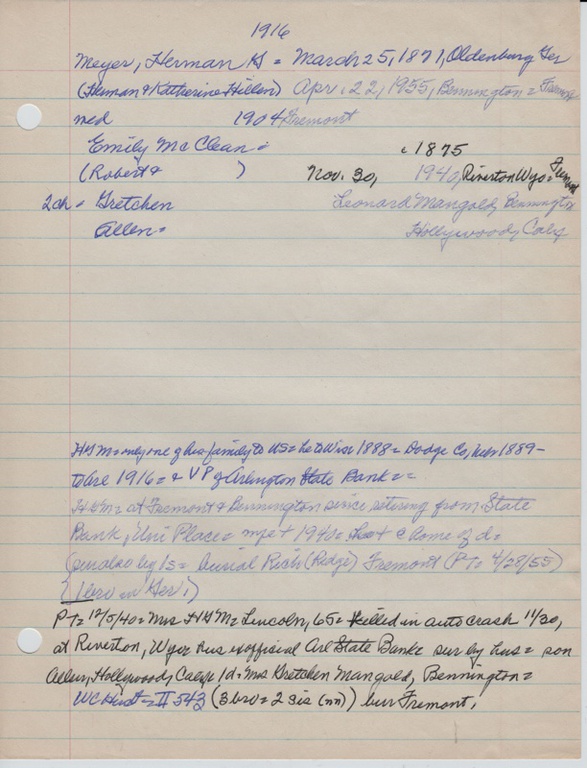 1916
Meyer, Herman H = March 25, 1871, Oldenburg Ger
(Herman & Katherine Hillen) Apr. 22, 1955, Bennington = Fremont
med 1904 Fremont
Emily McClean = c 1875
(Robert & ) Nov. 30, 1940, Riverton Wyo = Fremont
2ch = Gretchen Leonard Mangold, Bennington
Allen = Hollywood, Calif
HHM = only one of his family to US = he to Wisc 1888 = Dodge Co, Nebr 1889 -
to Arl 1916 = & VP of Arlington State Bank =
HHM = at Fremont & Bennington since retiring from State
Bank, Uni Place = 1940 = home of d =
= burial Rich (Ridge) Fremont (PT = 4/28/55)
(1 bro in Ger.)
PT = 12/5/40 = Mrs HHM = Lincoln, 65 = killed in auto crash 11/30,
at Riverton, Wyo = hus exofficial Arl State Bank = sur by hus = son
Allen, Hollywood, Calif = 1d = Mrs Gretchen Mangold, Bennington =
WC Hist = II 543 (3 bro = 2 sis (nn)) bur Fremont.